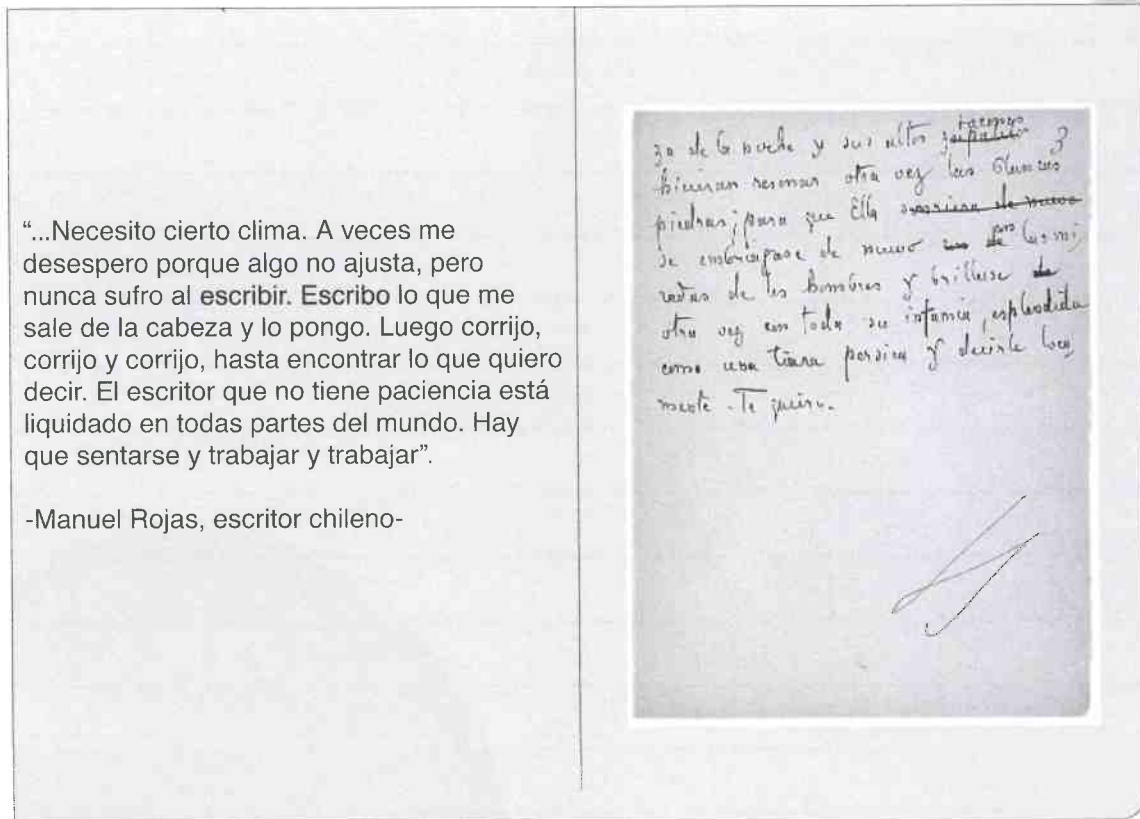 “...Necesito cierto clima. A veces me
desespero porque algo no ajusta, pero
nunca sufro al escribir. Escribo lo que me
sale de la cabeza y lo pongo. Luego corrijo,
corrijo y corrijo, hasta encontrar lo que quiero
decir. El escritor que no tiene paciencia está
liquidado en todas partes del mundo. Hay
que sentarse y trabajar y trabajar”.
-Manuel Rojas, escritor chileno-
za de la noche y sus altos
hicieran resonar otra vez las blancas
piedras; para que Ella sonriera de nuevo
se embriagase de nuevo las mi
radas de los hombres y brillase de
otra vez con toda su infamia, esplendida
como una tiara persica y decirle loca
mente - Te quiero.